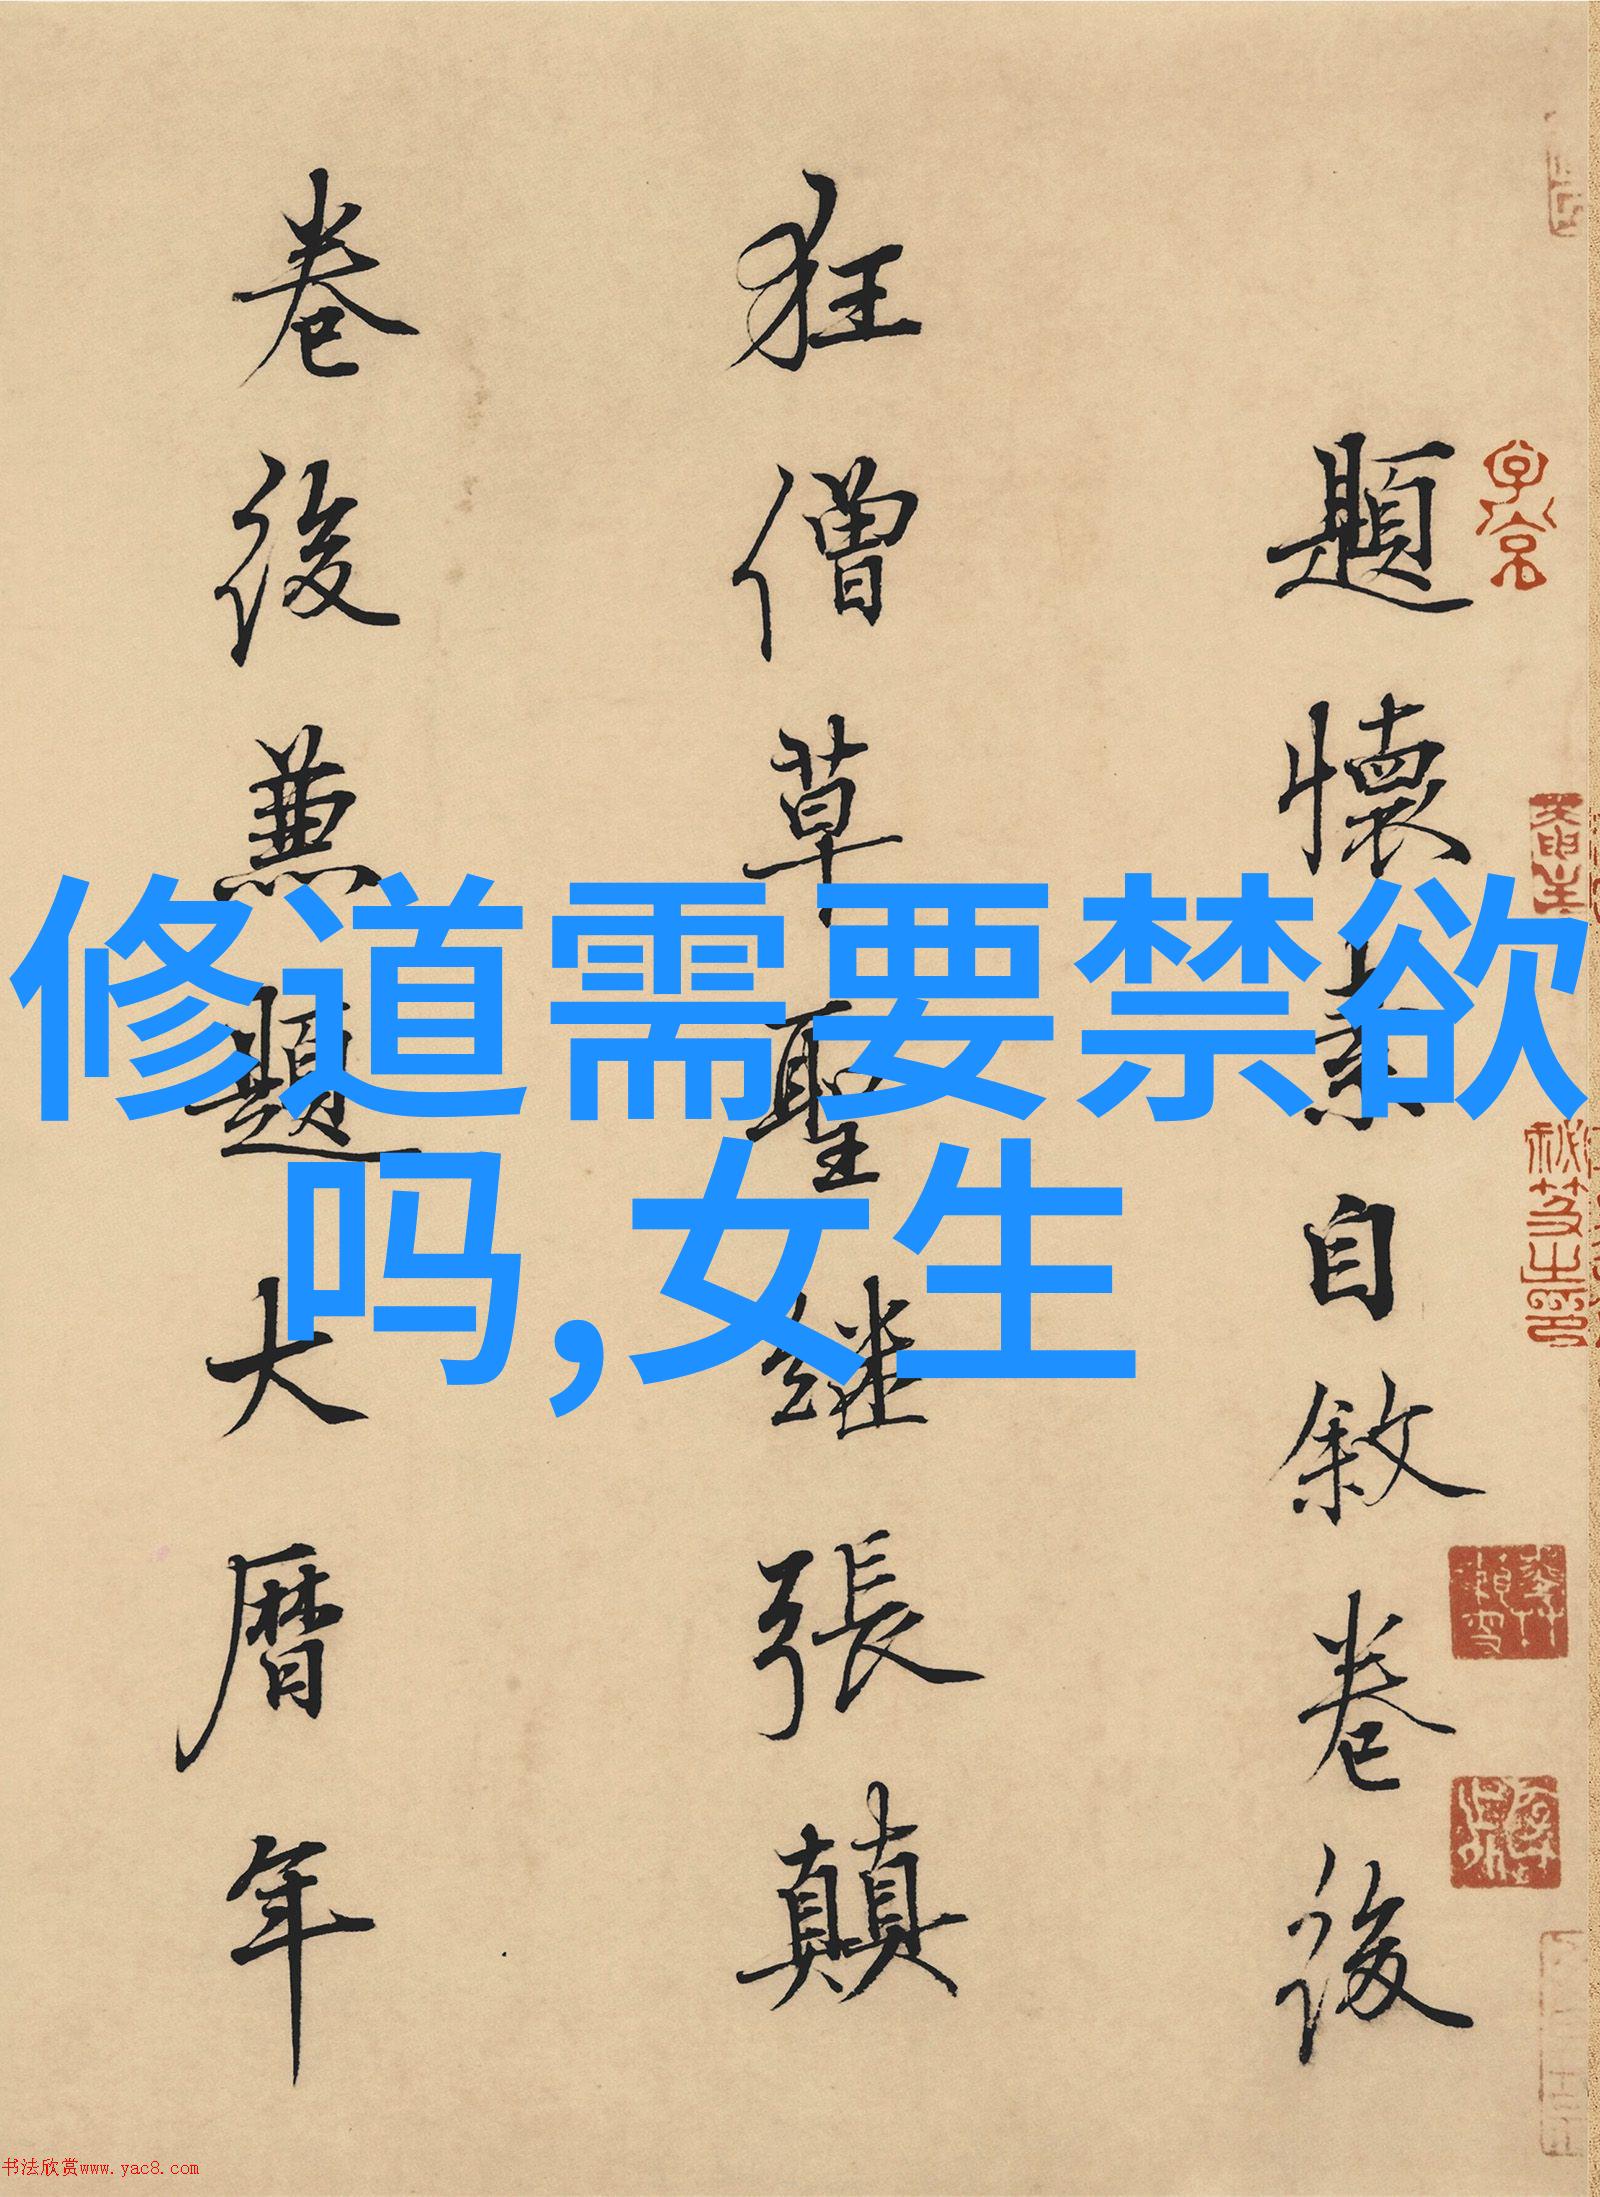 題懷素自敘卷後
狂僧草聖継張顛
卷後兼題大暦年
修道需要禁欲
吗,女生
书法欣赏www.yac8.com